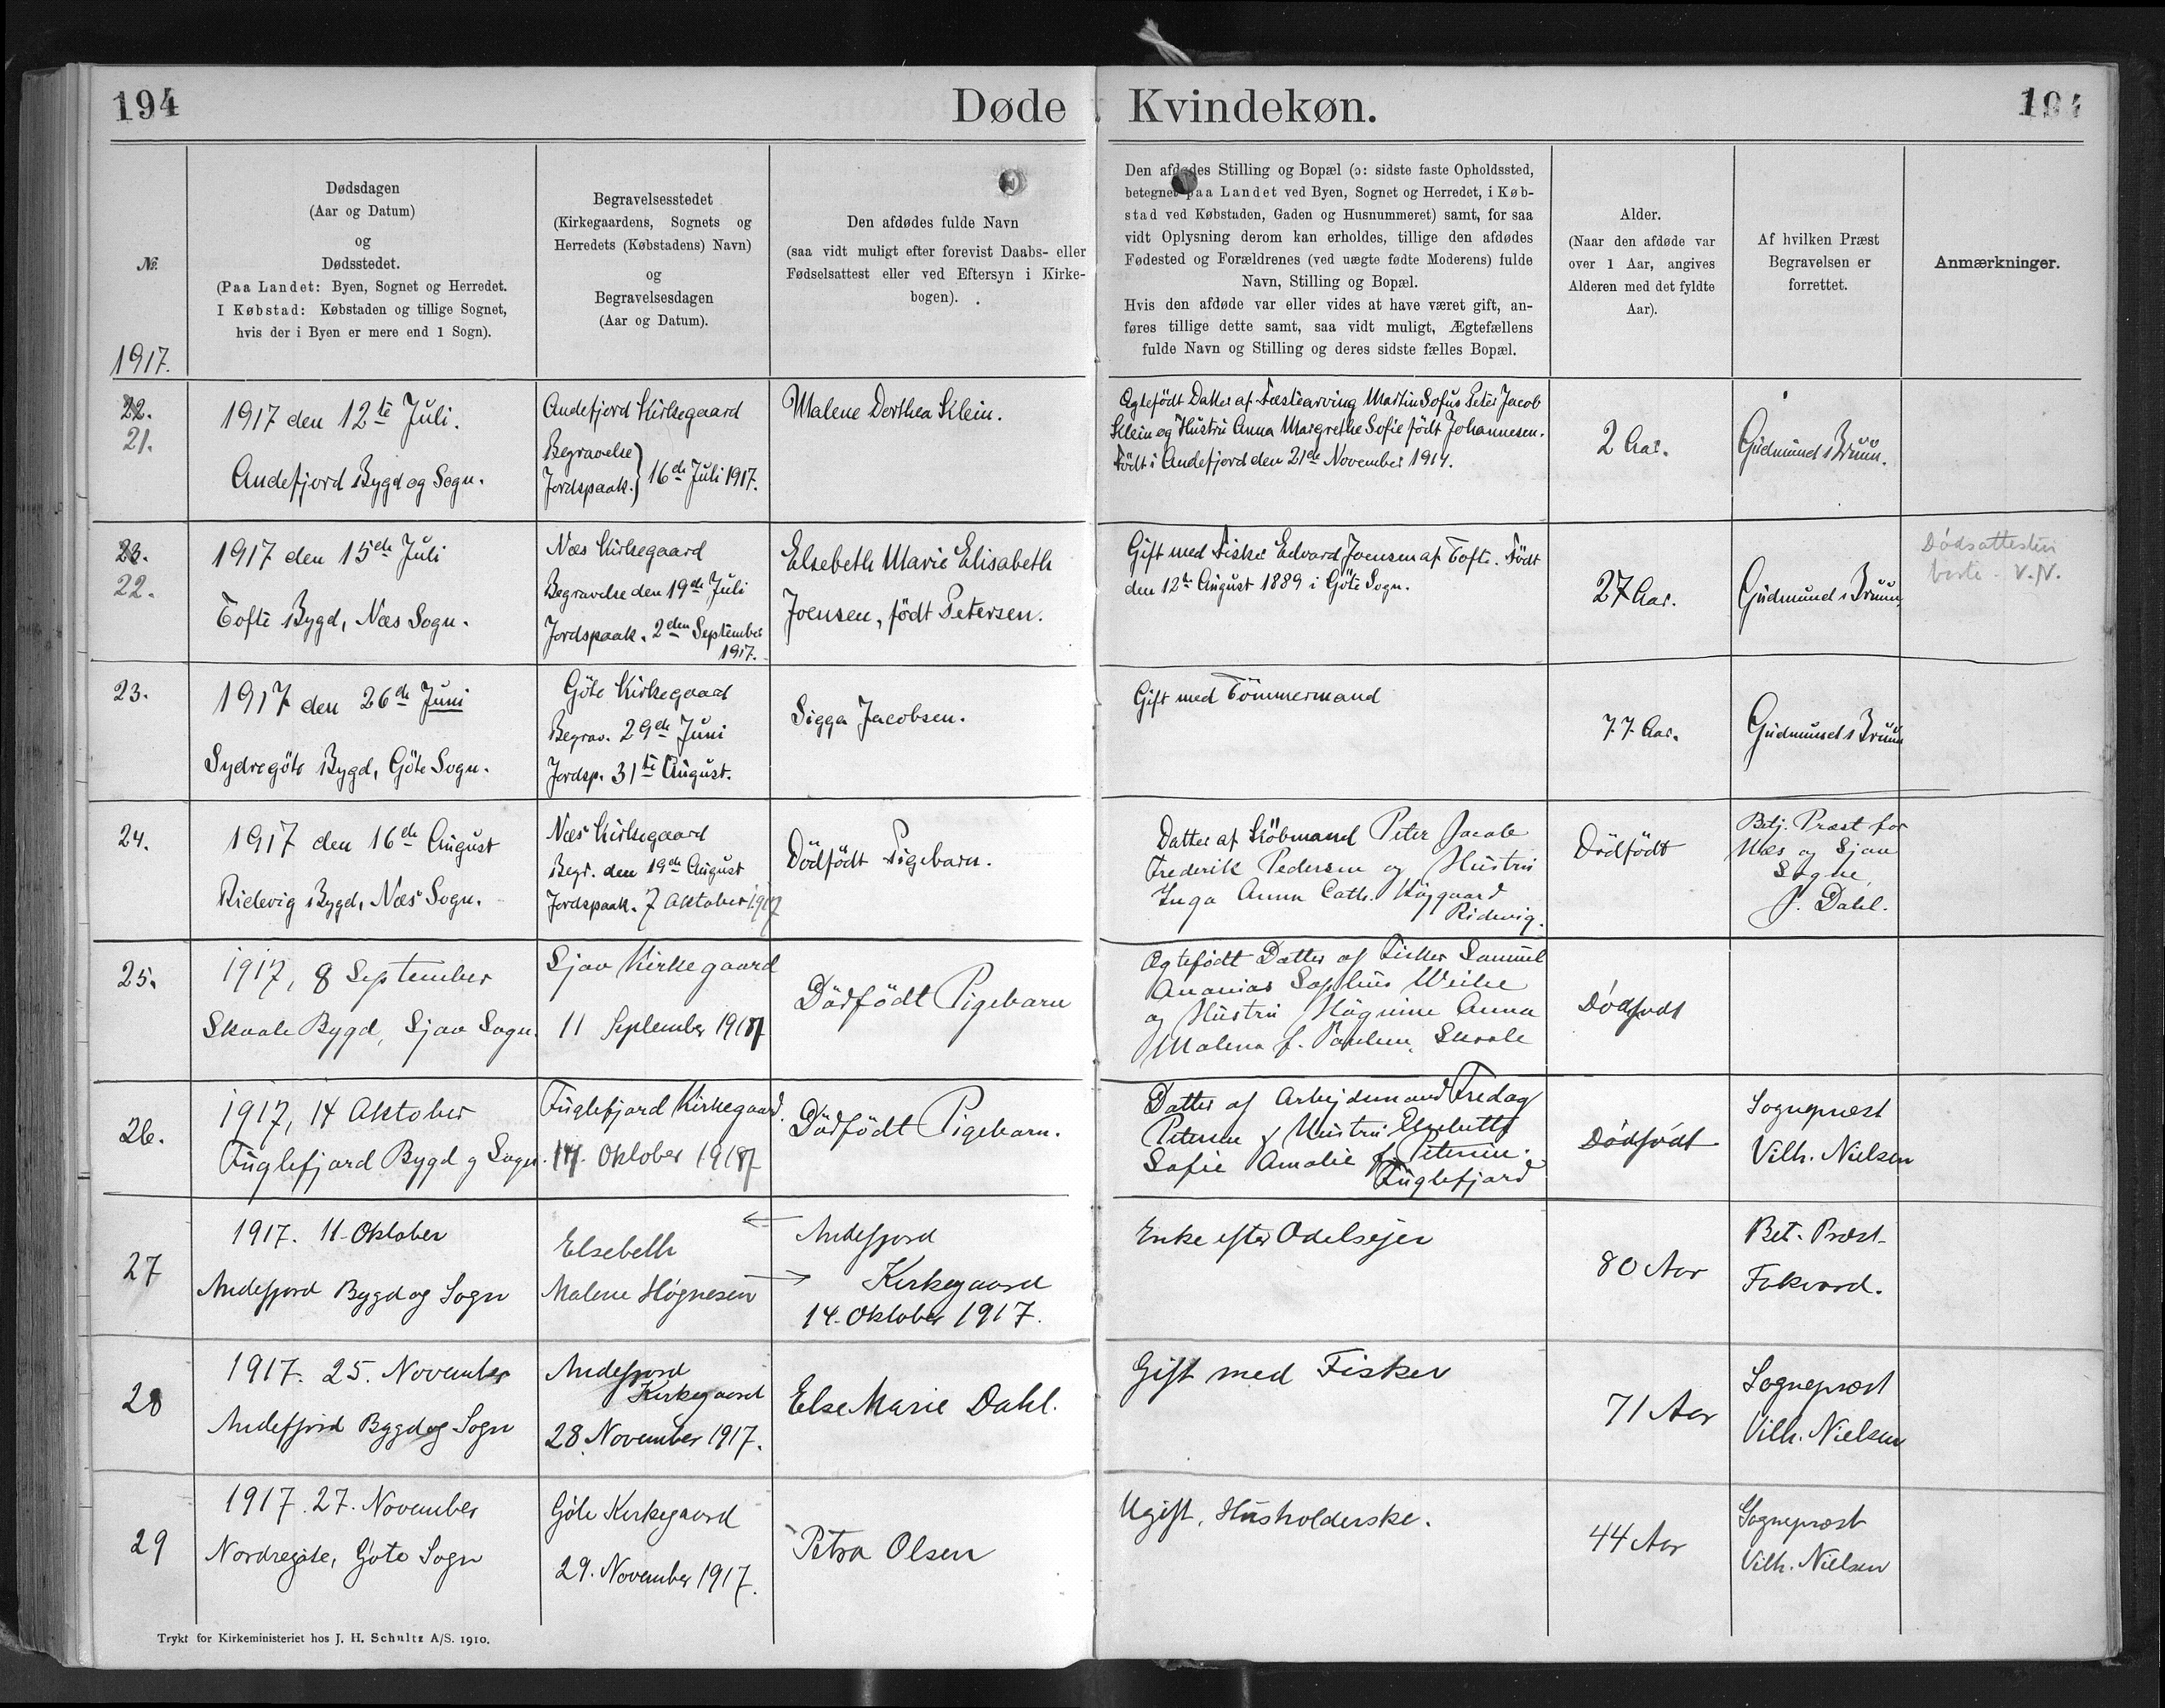 194
Døde Kvindekøn.
194
№
1917.
Dødsdagen
(Aar og Datum)
og
Dødsstedet.
(Paa Landet: Byen, Sognet og Herredet.
I Købstad: Købstaden og tillige Sognet,
hvis der i Byen er mere end 1 Sogn).
Begravelsesstedet
(Kirkegaardens, Sognets og
Herredets (Købstadens) Navn)
og
Begravelsesdagen
(Aar og Datum).
Den afdødes fulde Navn
(saa vidt muligt efter forevist Daabs- eller
Fødselsattest eller ved Eftersyn i Kirke-
bogen).
Den afdødes Stilling og Bopæl (ɔ: sidste faste Opholdssted,
betegnet paa Landet ved Byen, Sognet og Herredet, i Køb-
stad ved Købstaden, Gaden og Husnummeret) samt, for saa
vidt Oplysning derom kan erholdes, tillige den afdødes
Fødested og Forældrenes (ved uægte fødte Moderens) fulde
Navn, Stilling og Bopæl.
Hvis den afdøde var eller vides at have været gift, an-
føres tillige dette samt, saa vidt muligt, Ægtefællens
fulde Navn og Stilling og deres sidste fælles Bopæl.
Alder.
(Naar den afdøde var
over 1 Aar, angives
Alderen med det fyldte
Aar).
Af hvilken Præst
Begravelsen er
forrettet.
Anmærkninger.
22.
21.
1917 den 12te Juli.
Andefjord Bygd og Sogn.
Andefjord Kirkegaard
Begravelse
Jordspaak. } 16de Juli 1917.
Malene Dorthea Klein.
Ægtefödt Datter af Fæstearving Martin Sofus Peter Jacob
Klein og Hustru Anna Margrethe Sofie født Johannesen.
Födt i Andefjord den 21de November 1914.
2 Aar.
Gudmund Bruun.
23.
22.
1917 den 15de Juli
Tofte Bygd, Næs Sogn.
Næs Kirkegaard
Begravelse den 19de Juli
Jordspaak. 2den September
1917.
Elsebeth Marie Elisabeth
Joensen, født Petersen.
Gift med Fisker Edvard Joensen af Tofte. Födt
den 12te August 1889 i Göte Sogn.
27 Aar.
Gudmund Bruun
Dødsattesten
V.N.
23.
1917 den 26de Juni
Sydregöte Bygd, Göte Sogn.
Göte Kirkegaard
Begrav. 29de Juni
Jordsp. 31te August.
Sigga Jacobsen.
Gift med Tömmermand
77 Aar.
Gudmund Bruun
24.
1917 den 16de August
Ridevig Bygd, Næs Sogn.
Næs Kirkegaard
Begr. den 19de August
Jordspaak. 7 Oktober 1917
Dödfödt Pigebarn.
Datter af Köbmand Peter Jacob
Frederik Pedersen og Hustru
Inga Anna Cath. Höjgaard
Ridevig.
Dödfödt
Betj. Præst for
Næs og Sjov
Sogne
J. Dahl.
25.
1917, 8 September
Skaale Bygd, Sjov Sogn.
Sjov Kirkegaard
11 September 1917
Dödfödt Pigebarn
Ægtefödt Datter af Fisker Samuel
Ananias Sophus Weihe
og Hustru Høgnine Anna
Malena f. Poulsen, Skaale
Dødfødt
26.
1917, 14 Oktober
Fuglefjord Bygd og Sogn.
Fuglefjord Kirkegaard.
17. Oktober 1917
Dödfödt Pigebarn.
Datter af Arbejdsmand Fredag
Petersen og Hustru Elsebeth
Sofie Amalie f. Petersen.
Fuglefjord
Dødfødt
Sognepræst
Vilh. Nielsen
27
1917. 11. Oktober
Andefjord Bygd og Sogn
Elsebeth
Malene Høgnesen
Andefjord
Kirkegaard
14. Oktober 1917.
Enke efter Odelsejer
80 Aar
Bet. Præst
Fokvord.
28
1917. 25. November
Andefjord Bygd og Sogn
Andefjord
Kirkegaard
28 November 1917.
Else Marie Dahl.
Gift med Fisker
71 Aar
Sognepræst
Vilh. Nielsen
29
1917. 27. November
Nordregöte, Göte Sogn
Göte Kirkegaard
29. November 1917.
Petra Olsen
Ugift. Husholderske.
44 Aar
Sognepræst
Vilh. Nielsen
Trykt for Kirkeministeriet hos J. H. Schultz A/S. 1910.